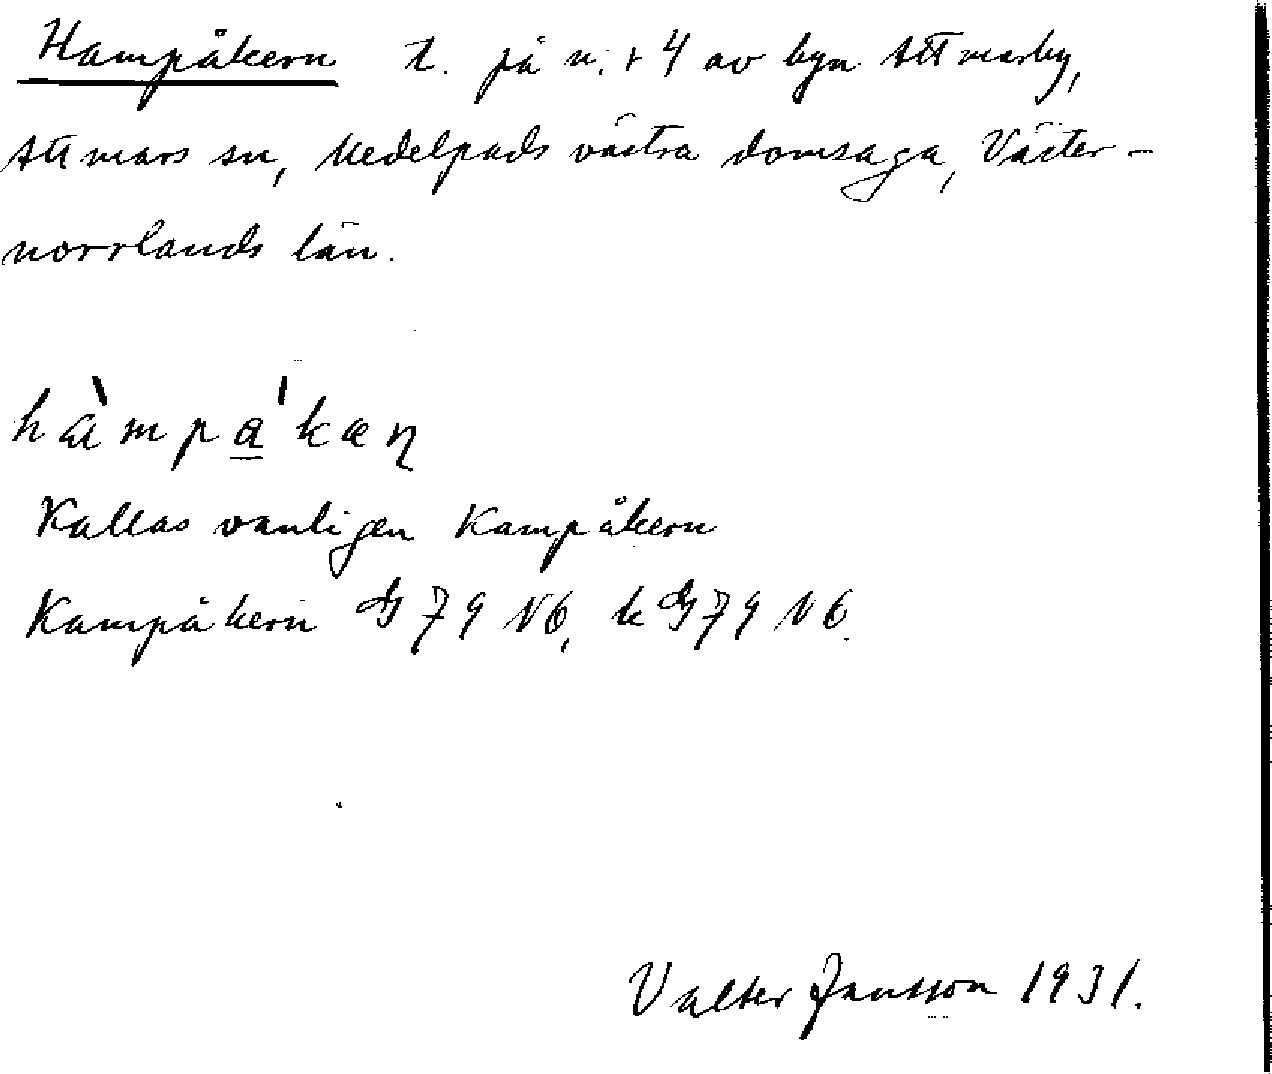 Hampåkern t. på n:r 4 av byn Attmarby,
Attmars sn, Medelpads västra domsaga, Väster-
norrlands län.
hàmpa̲'kæɳ
Kallas vanligen Kampåkern
Kampåkern G 79 N6, k G 79 N6.
Valter Jansson 1931.